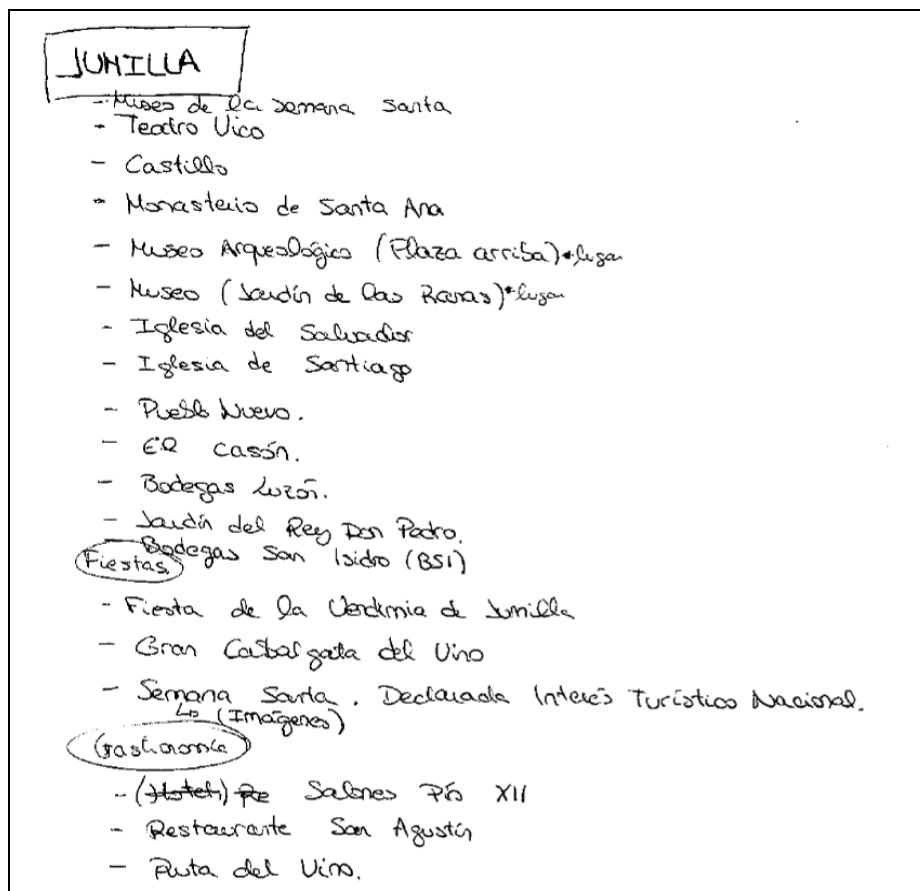 JUMILLA
- Museo de la Semana Santa
- Teatro Vico
- Castillo
- Monasterio de Santa Ana
- Museo Arqueológico (Plaza arriba)*lugar
- Museo (Jardín de las Ranas)*lugar
- Iglesia del Salvador
- Iglesia de Santiago
- Pueblo Nuevo.
- El Casón.
- Bodegas Luzón.
- Jardín del Rey Don Pedro.
- Bodegas San Isidro (BSI)
Fiestas
- Fiesta de la Vendimia de Jumilla
- Gran Cabalgata del Vino
- Semana Santa. Declarada Interés Turístico Nacional.
↳ (Imágenes)
Gastronomía
- (Hotel) Re Salones Pío XII
- Restaurante San Agustín
- Ruta del Vino.